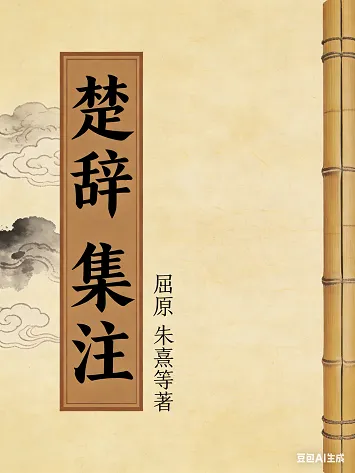 楚辞 集注
屈原 朱熹等著
豆包AI生成